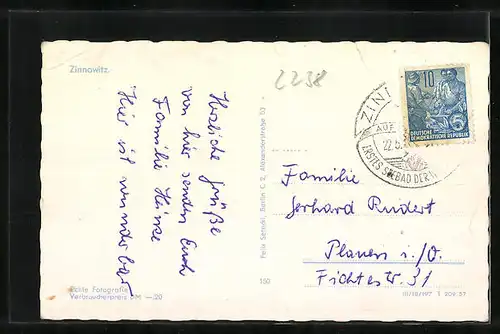 Zinnowitz.
Herzliche Grüße
von hier senden Euch
Familie Heinze
Hier ist wunderbar
Echte Fotografie
Verbraucherpreis DM —20
Felix Setecki, Berlin C 2, Alexanderstraße 53
150
2238
ZINN
AUF
22.5.
ERSTES SEEBAD DER
10
5
DEUTSCHE
DEMOKRATISCHE REPUBLIK
Familie
Gerhard Rudert
Plauen i./V.
Fichtestr. 31
III/18/197 1 209 57